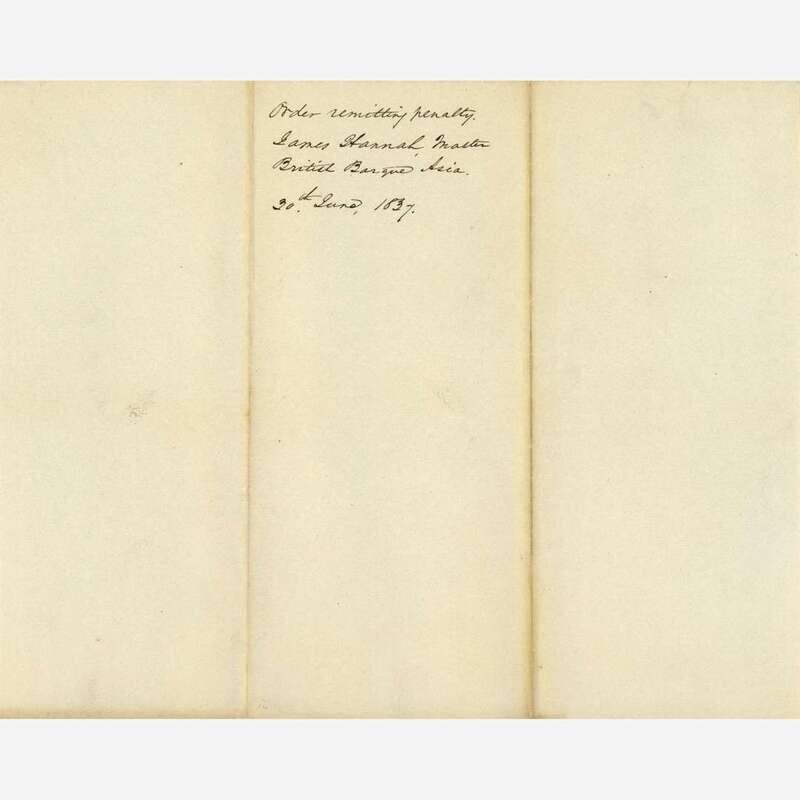 Order remitting penalty.
James Hannah, Master
British Barque Asia.
30th June, 1837.